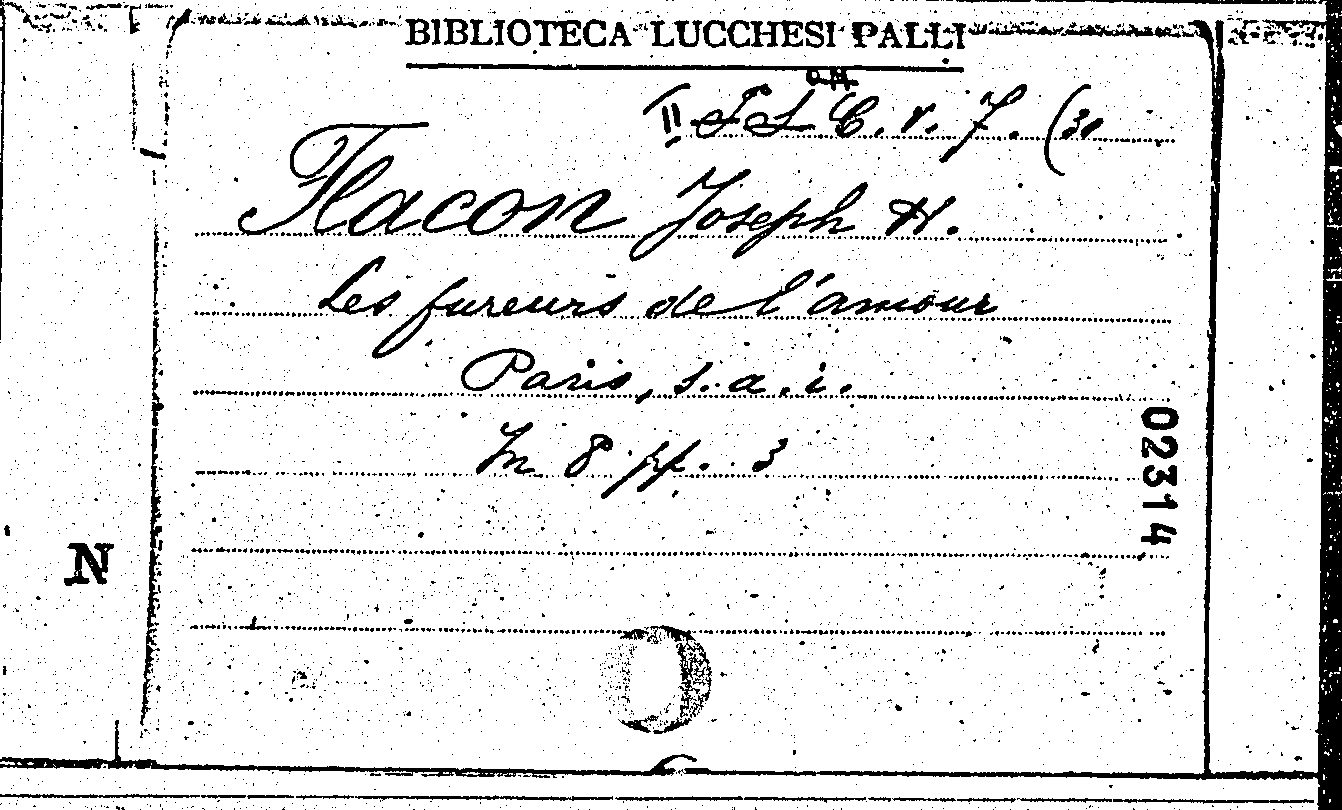 BIBLIOTECA LUCCHESI PALLI
II C. r. 7. (30
Flacon Joseph H.
Les fureurs de l'amour
Paris, s. a. i.
In 8 pp. 3
02314
N